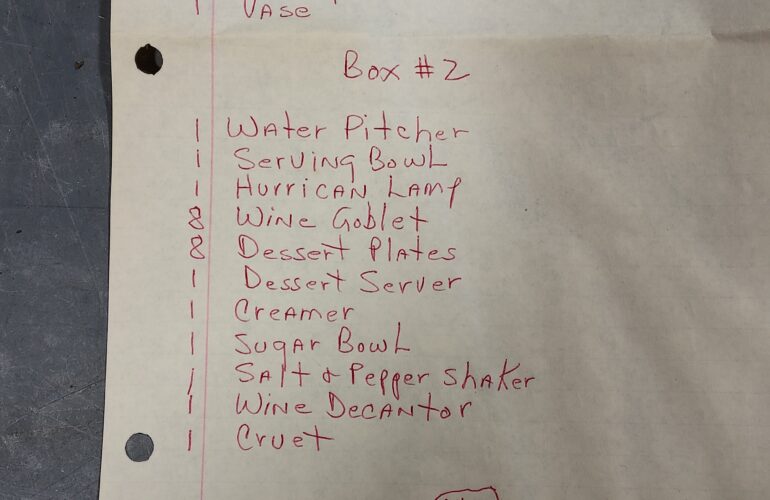 1 Vase
Box #2
1 Water Pitcher
1 Serving Bowl
1 Hurrican Lamp
8 Wine Goblet
8 Dessert Plates
1 Dessert Server
1 Creamer
1 Sugar Bowl
1 Salt & Pepper Shaker
1 Wine Decantor
1 Cruet